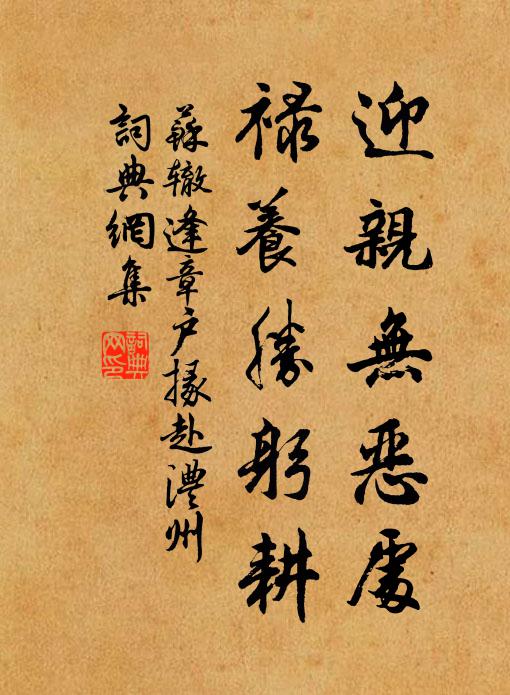 迎親無惡處
祿養勝躬耕
蘇辙逢章户掾赴澧州
詞典網集
詞典
网印